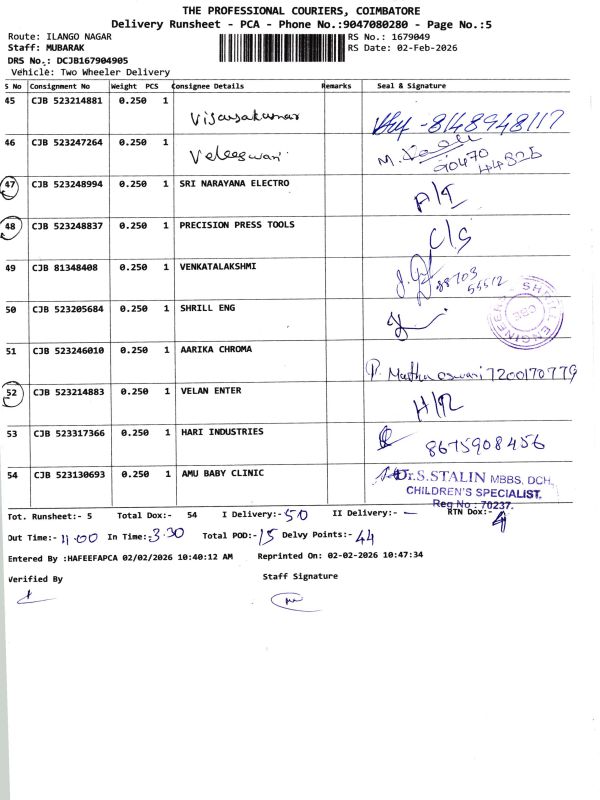 THE PROFESSIONAL COURIERS, COIMBATORE
Delivery Runsheet - PCA - Phone No.:9047080280 - Page No.:5
Route: ILANGO NAGAR RS No.: 1679049
Staff: MUBARAK RS Date: 02-Feb-2026
DRS No.: DCJB167904905
Vehicle: Two Wheeler Delivery
S No Consignment No Weight PCS Consignee Details Remarks Seal & Signature
45 CJB 523214881 0.250 1 8148948117
46 CJB 523247264 0.250 1 M. 90470 44825
47 CJB 523248994 0.250 1 SRI NARAYANA ELECTRO A/I
48 CJB 523248837 0.250 1 PRECISION PRESS TOOLS C/S
49 CJB 81348408 0.250 1 VENKATALAKSHMI 88703 55512
50 CJB 523205684 0.250 1 SHRILL ENG SHRILL ENGINEERS CBE
51 CJB 523246010 0.250 1 AARIKA CHROMA 7200170779
52 CJB 523214883 0.250 1 VELAN ENTER
53 CJB 523317366 0.250 1 HARI INDUSTRIES 8675908456
54 CJB 523130693 0.250 1 AMU BABY CLINIC Dr.S.STALIN MBBS, DCH,
CHILDREN'S SPECIALIST.
Reg No : 70237.
Tot. Runsheet:- 5 Total Dox:- 54 I Delivery:- 50 II Delivery:- — RTN Dox:- 4
Out Time:- 11.00 In Time:- 3.30 Total POD:- 15 Delvy Points:- 44
Entered By :HAFEEFAPCA 02/02/2026 10:40:12 AM Reprinted On: 02-02-2026 10:47:34
Verified By Staff Signature